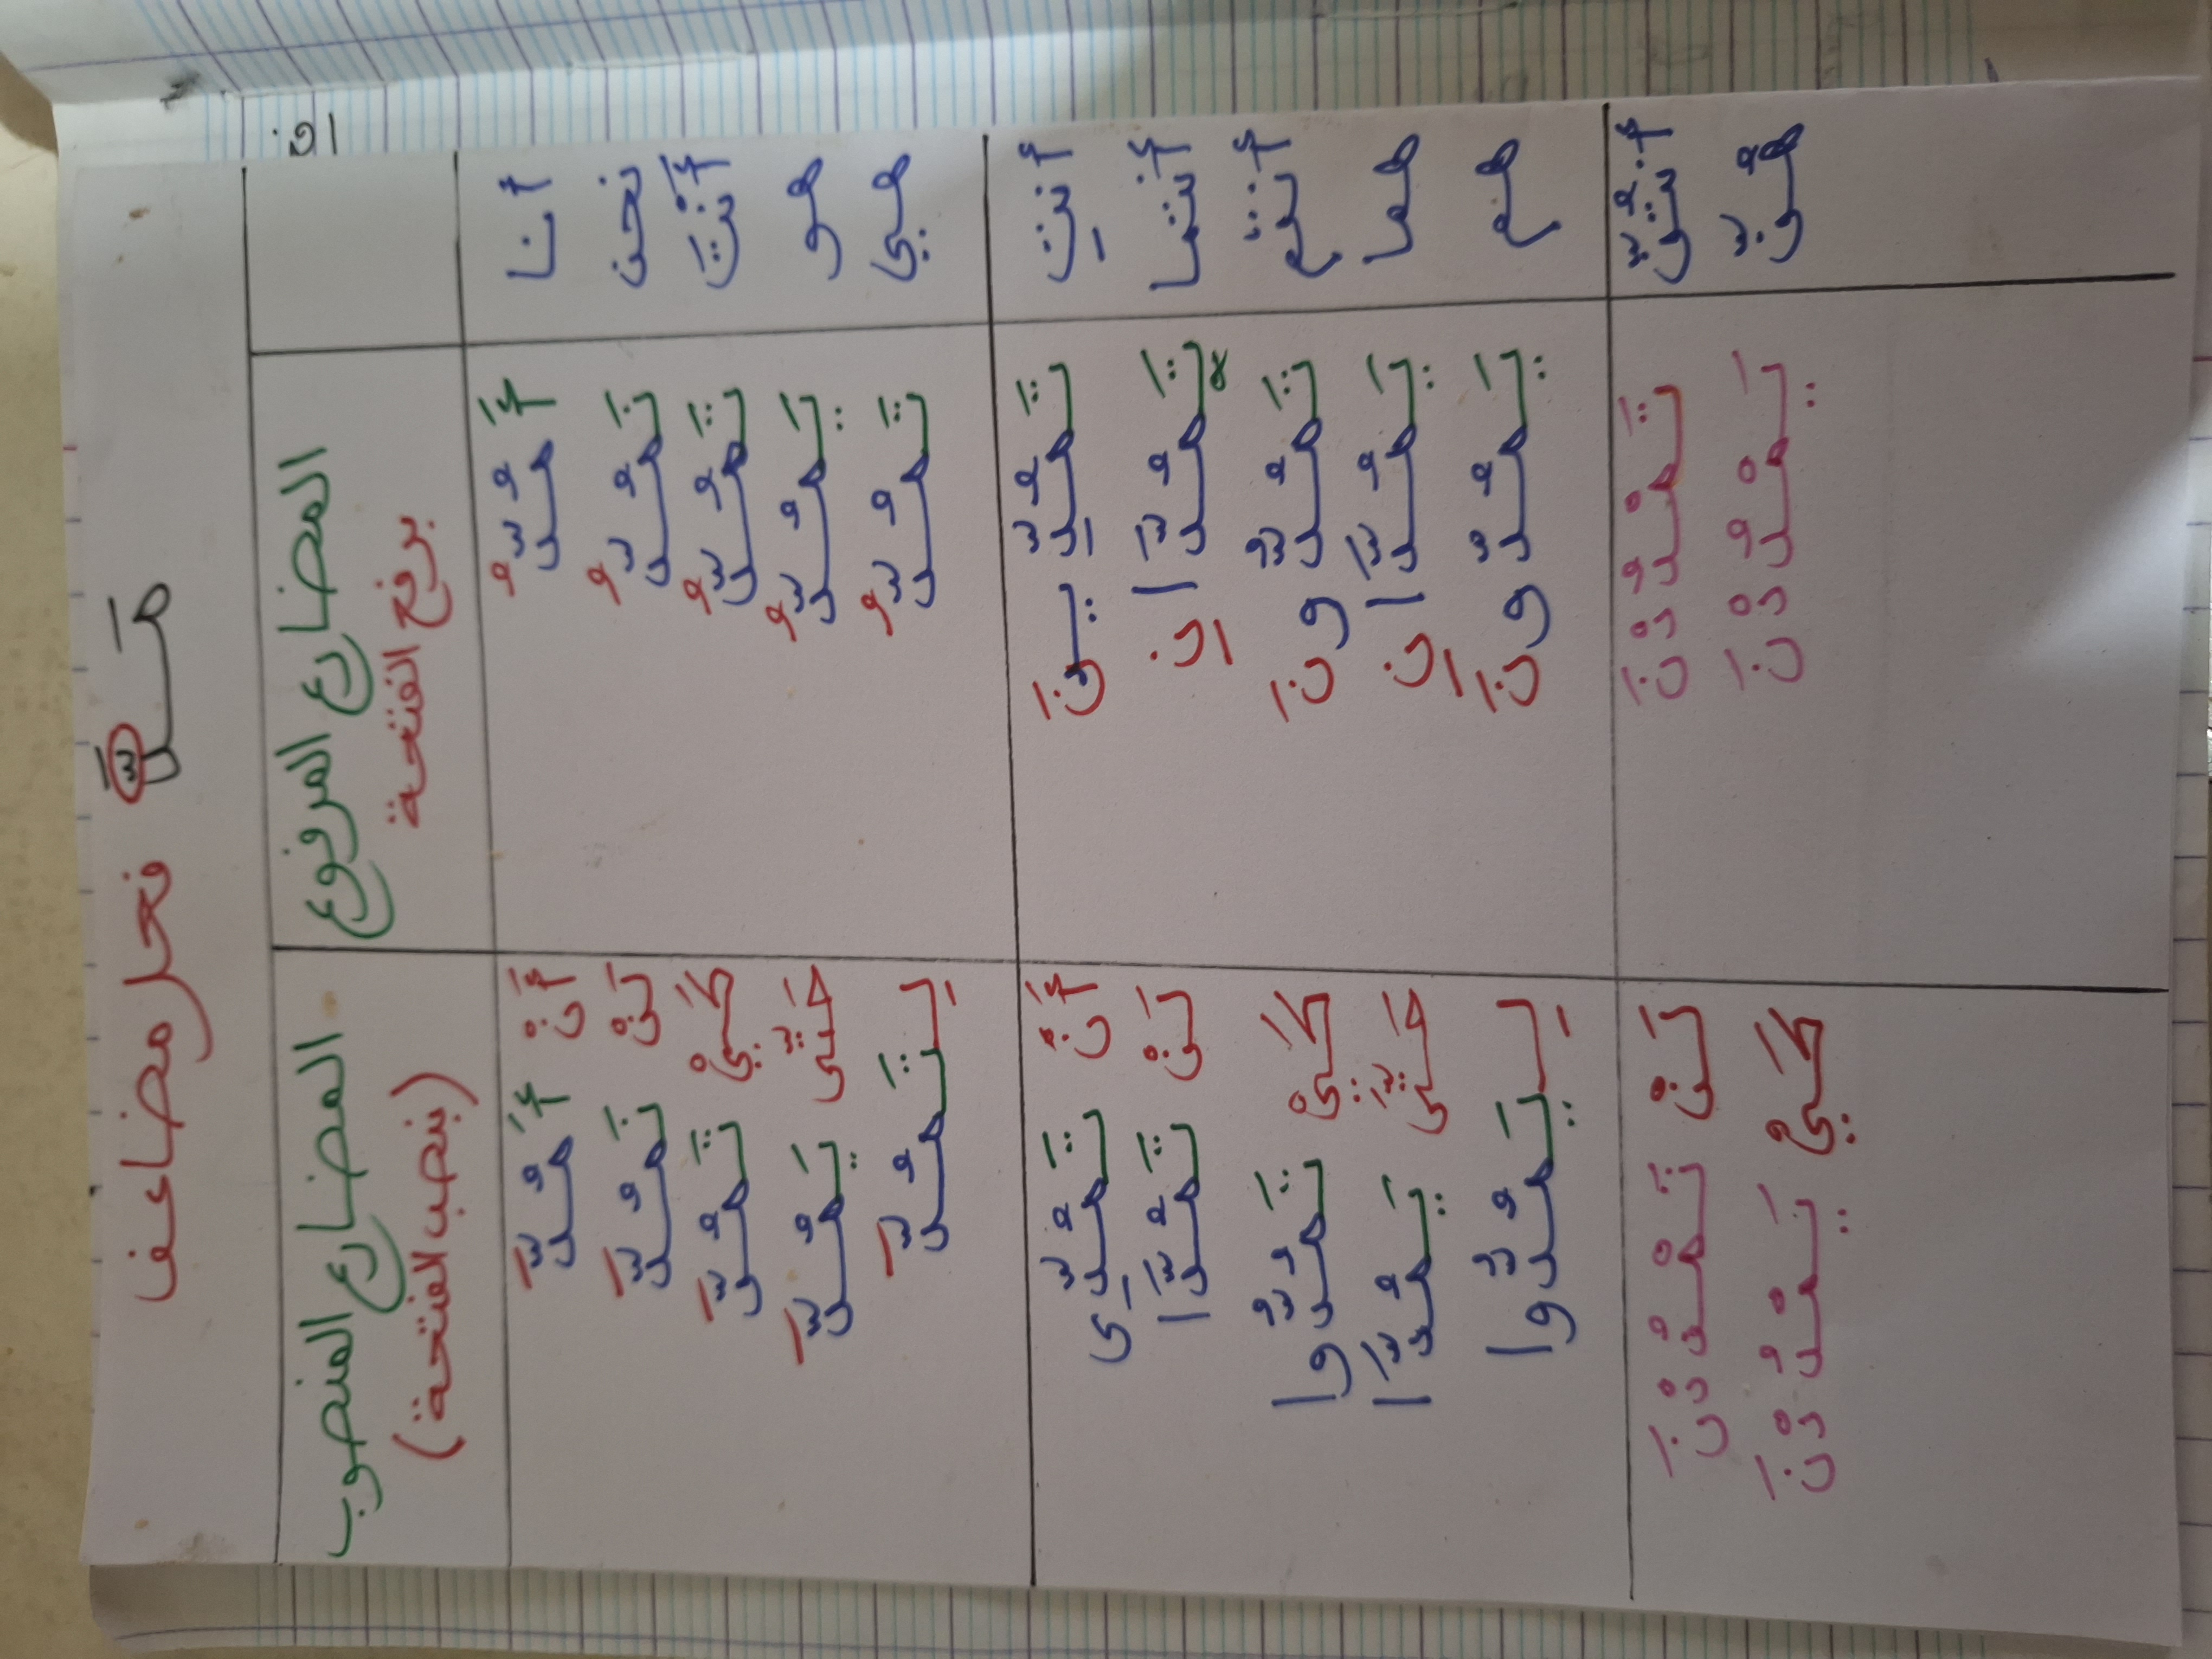 مَـرَّ فعل مضاعف
المضارع المرفوع المضارع المنصوب
برفع الفتحة (بنصب الفتحة)
أنا أَمُرُّ أَنْ أَمُرَّ
نحن نَمُرُّ لَنْ نَمُرَّ
أَنْتَ تَمُرُّ كَيْ تَمُرَّ
هو يَمُرُّ حَتَّى يَمُرَّ
هي تَمُرُّ لِتَمُرَّ
أنتِ تَمُرِّينَ أَنْ تَمُرِّي
أنتما تَمُرَّانِ لَنْ تَمُرَّا
أنتم تَمُرُّونَ كَيْ تَمُرُّوا
هما يَمُرَّانِ حَتَّى يَمُرَّا
هم يَمُرُّونَ لِيَمُرُّوا
أنتُنَّ تَمْرُرْنَ لَنْ تَمْرُرْنَ
هُنَّ يَمْرُرْنَ كَيْ يَمْرُرْنَ